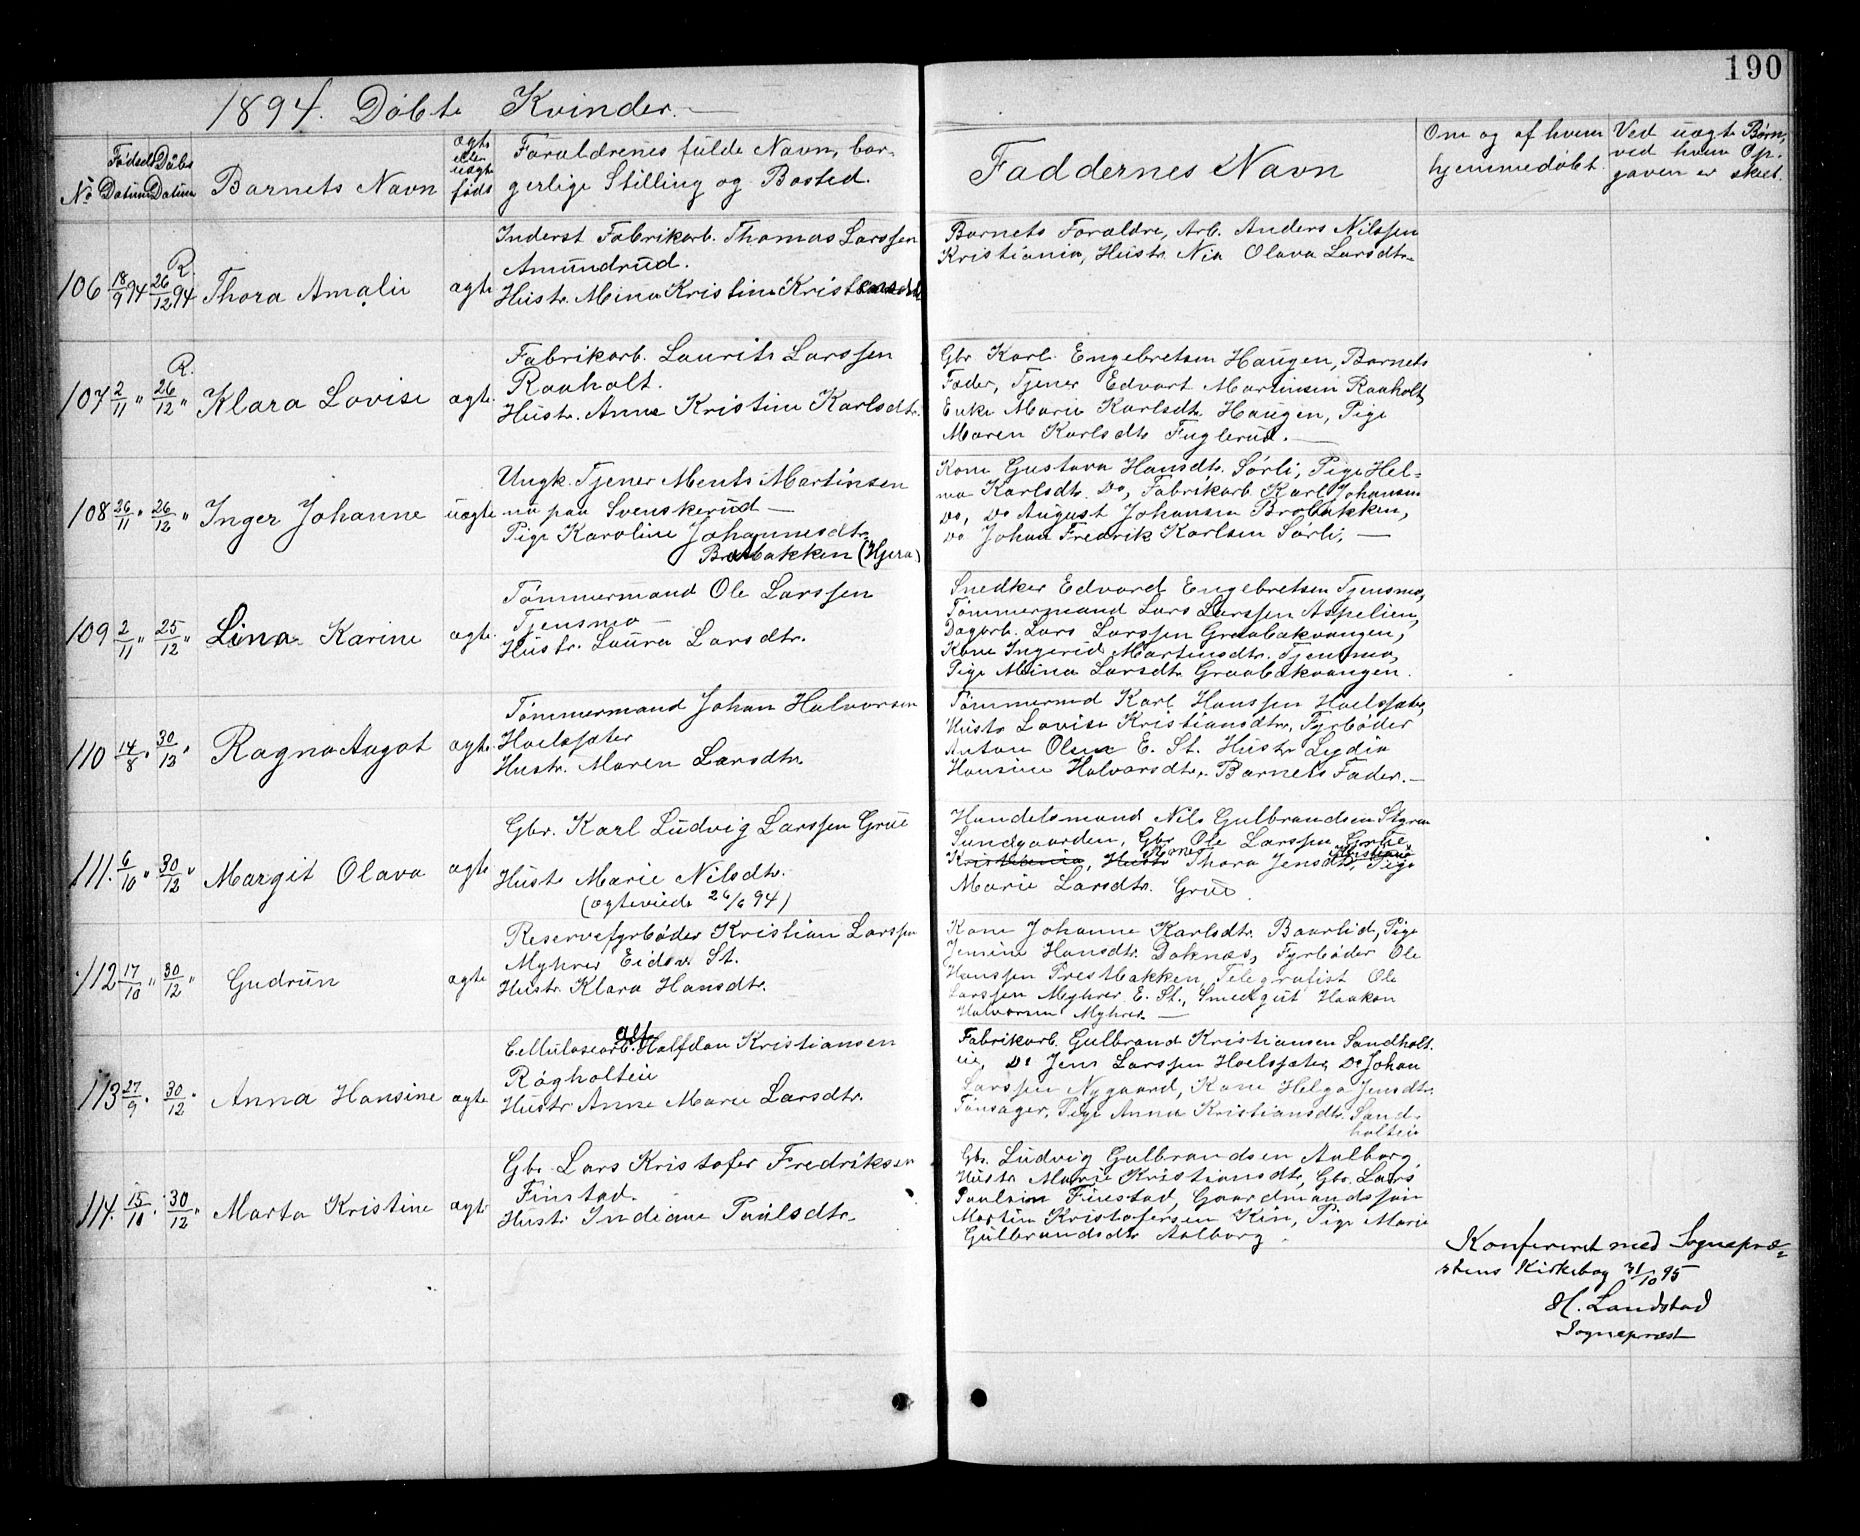 190
1894. Døbte Kvinder.
No
Fødsels Datum
Døbs Datum
Barnets Navn
ægte eller uægte føds
Forældrenes fulde Navn, bor-
gerlige Stilling og Bosted.
Faddernes Navn
Om og af hvem
hjemmedøbt.
Ved uægte Børn,
ved hvem Op-
gaven er skeet.
106 18/9 94 R. 26/12 94 Thora Amalie ægte
Inderst Fabrikarb. Thomas Larssen
Amundrud.
Hustr. Mina Kristine Kristensdtr
Barnets Forældre, Arb. Anders Nilssen
Kristiania, Hustr. Nia Olava Larsdtr.
107 2/11 " R. 26/12 " Klara Lovise ægte.
Fabrikarb. Laurits Larssen
Raaholt.
Hustr. Anne Kristine Karlsdtr.
Gbr Karl Engebretsen Haugen, Barnets
Fader, Tjener Edvart Martinsen Raaholt,
Enke Marie Karlsdtr. Haugen, Pige
Maren Karlsdtr Fuglerud. —
108 26/11 " 26/12 " Inger Johanne uægte
Ungk. Tjener Ments Martinsen
nu paa Svenskerud —
Pige Karoline Johannesdtr
Brobakken (Hjera)
Kone Gustava Hansdtr. Sørli, Pige Hel-
ma Karlsdtr. Do, Fabrikarb. Karl Johansen
Do, Do August Johansen Brobakken,
Do Johan Fredrik Karlsen Sørli, —
109 2/11 " 25/12 " Lina Karine ægte.
Tømmermand Ole Larssen
Tjensmo —
Hustr. Laura Larsdtr.
Snedker Edvard Engebretsen Tjensmo,
Tømmermand Lars Larssen Aspelien,
Dagarb. Lars Larssen Graabakvangen,
Kone Ingerid Martinsdtr. Tjensmo,
Pige Mina Larsdtr Graabakvangen.
110 14/8 " 30/12 " Ragna Aagot ægte.
Tømmermand Johan Halvorsen
Hoelsjæter
Hustr. Maren Larsdtr
Tømmermd Karl Hanssen Hoelsjæter,
Hustr. Lovise Kristiansdtr, Fyrbøder
Anton Olsen E. St. Hustr. Lydia
Hansine Halvorsdtr, Barnets Fader. —
111. 6/10 " 30/12 " Margit Olava ægte
Gbr. Karl Ludvig Larssen Grue
Hustr Marie Nilsdtr.
(ægteviede 26/6 94)
Handelsmand Nils Gulbrandsen Styren
Sundgaarden, Gbr Ole Larssen Grue
Kristiania, Hustr Thora Jensdtr, Kristiania Pige
Marie Larsdtr. Grue.
112 17/10 " 30/12 " Gudrun ægte
Reservefyrbøder Kristian Larssen
Myhrer Eidsv. St.
Hustr. Klara Hansdtr.
Kone Johanne Karlsdtr. Baarlid, Pige
Jensine Hansdtr. Doknæs, Fyrbøder Ole
Hanssen Prestbakken, Telegrafist Ole
Larssen Myhrer E. St., Smedgut Haakon
Halvorsen Myhrer. —
113 27/9 " 30/12 " Anna Hansine ægte
Cellulosearb. Alf Halfdan Kristiansen
Røgholteie
Hustr Anne Marie Larsdtr.
Fabrikarb. Gulbrand Kristiansen Sandholt-
eie, Do Jens Larssen Hoelsjæter, Do Johan
Larssen Nygaard, Kone Helga Jensdtr.
Tønsager, Pige Anna Kristiansdtr. Sand-
holteie
114. 15/10 " 30/12 " Marta Kristine ægte
Gbr. Lars Kristofer Fredriksen
Finstad.
Hustr. Indiane Paulsdtr.
Gbr. Ludvig Gulbrandsen Aalborg,
Hustr Marie Kristiansdtr, Gbr. Lars
Paulsen Finstad, Gaardmandssøn
Martin Kristofersen Kin, Pige Marie
Gulbrandsdtr Aalborg.
Konfereret med Sognepræ-
stens Kirkebog 31/10 95
H. Landstad
Sogneprest